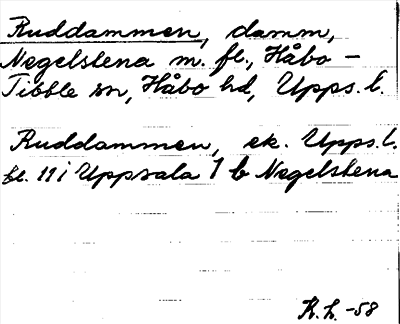 Ruddammen, damm,
Negelstena m. fl., Håbo -
Tibble sn, Håbo hd, Upps. l.
Ruddammen, ek. Upps. l.
bl. 11 i Uppsala 1 b Negelstena
R. L. -58